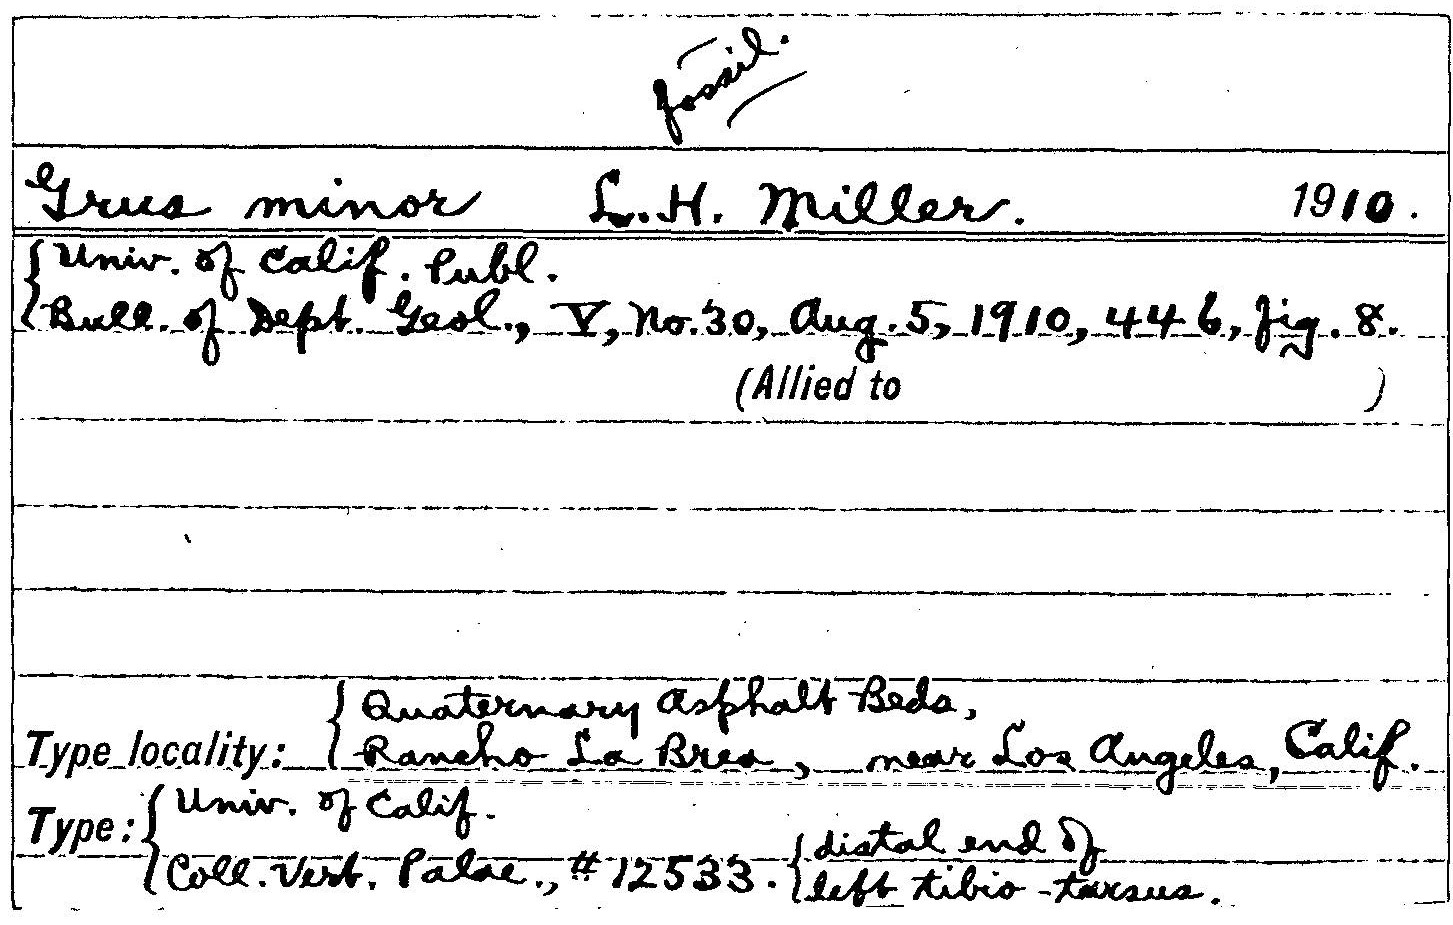 fossil.
Grus minor L. H. Miller. 1910.
Univ. of Calif. Publ.
Bull. of Dept. Geol., V, No. 30, Aug. 5, 1910, 446, fig. 8.
(Allied to )
Quaternary Asphalt Beds,
Type locality: Rancho La Brea, near Los Angeles, Calif.
Type: Univ. of Calif.
Coll. Vert. Palae., # 12533. distal end of
left tibio-tarsus.